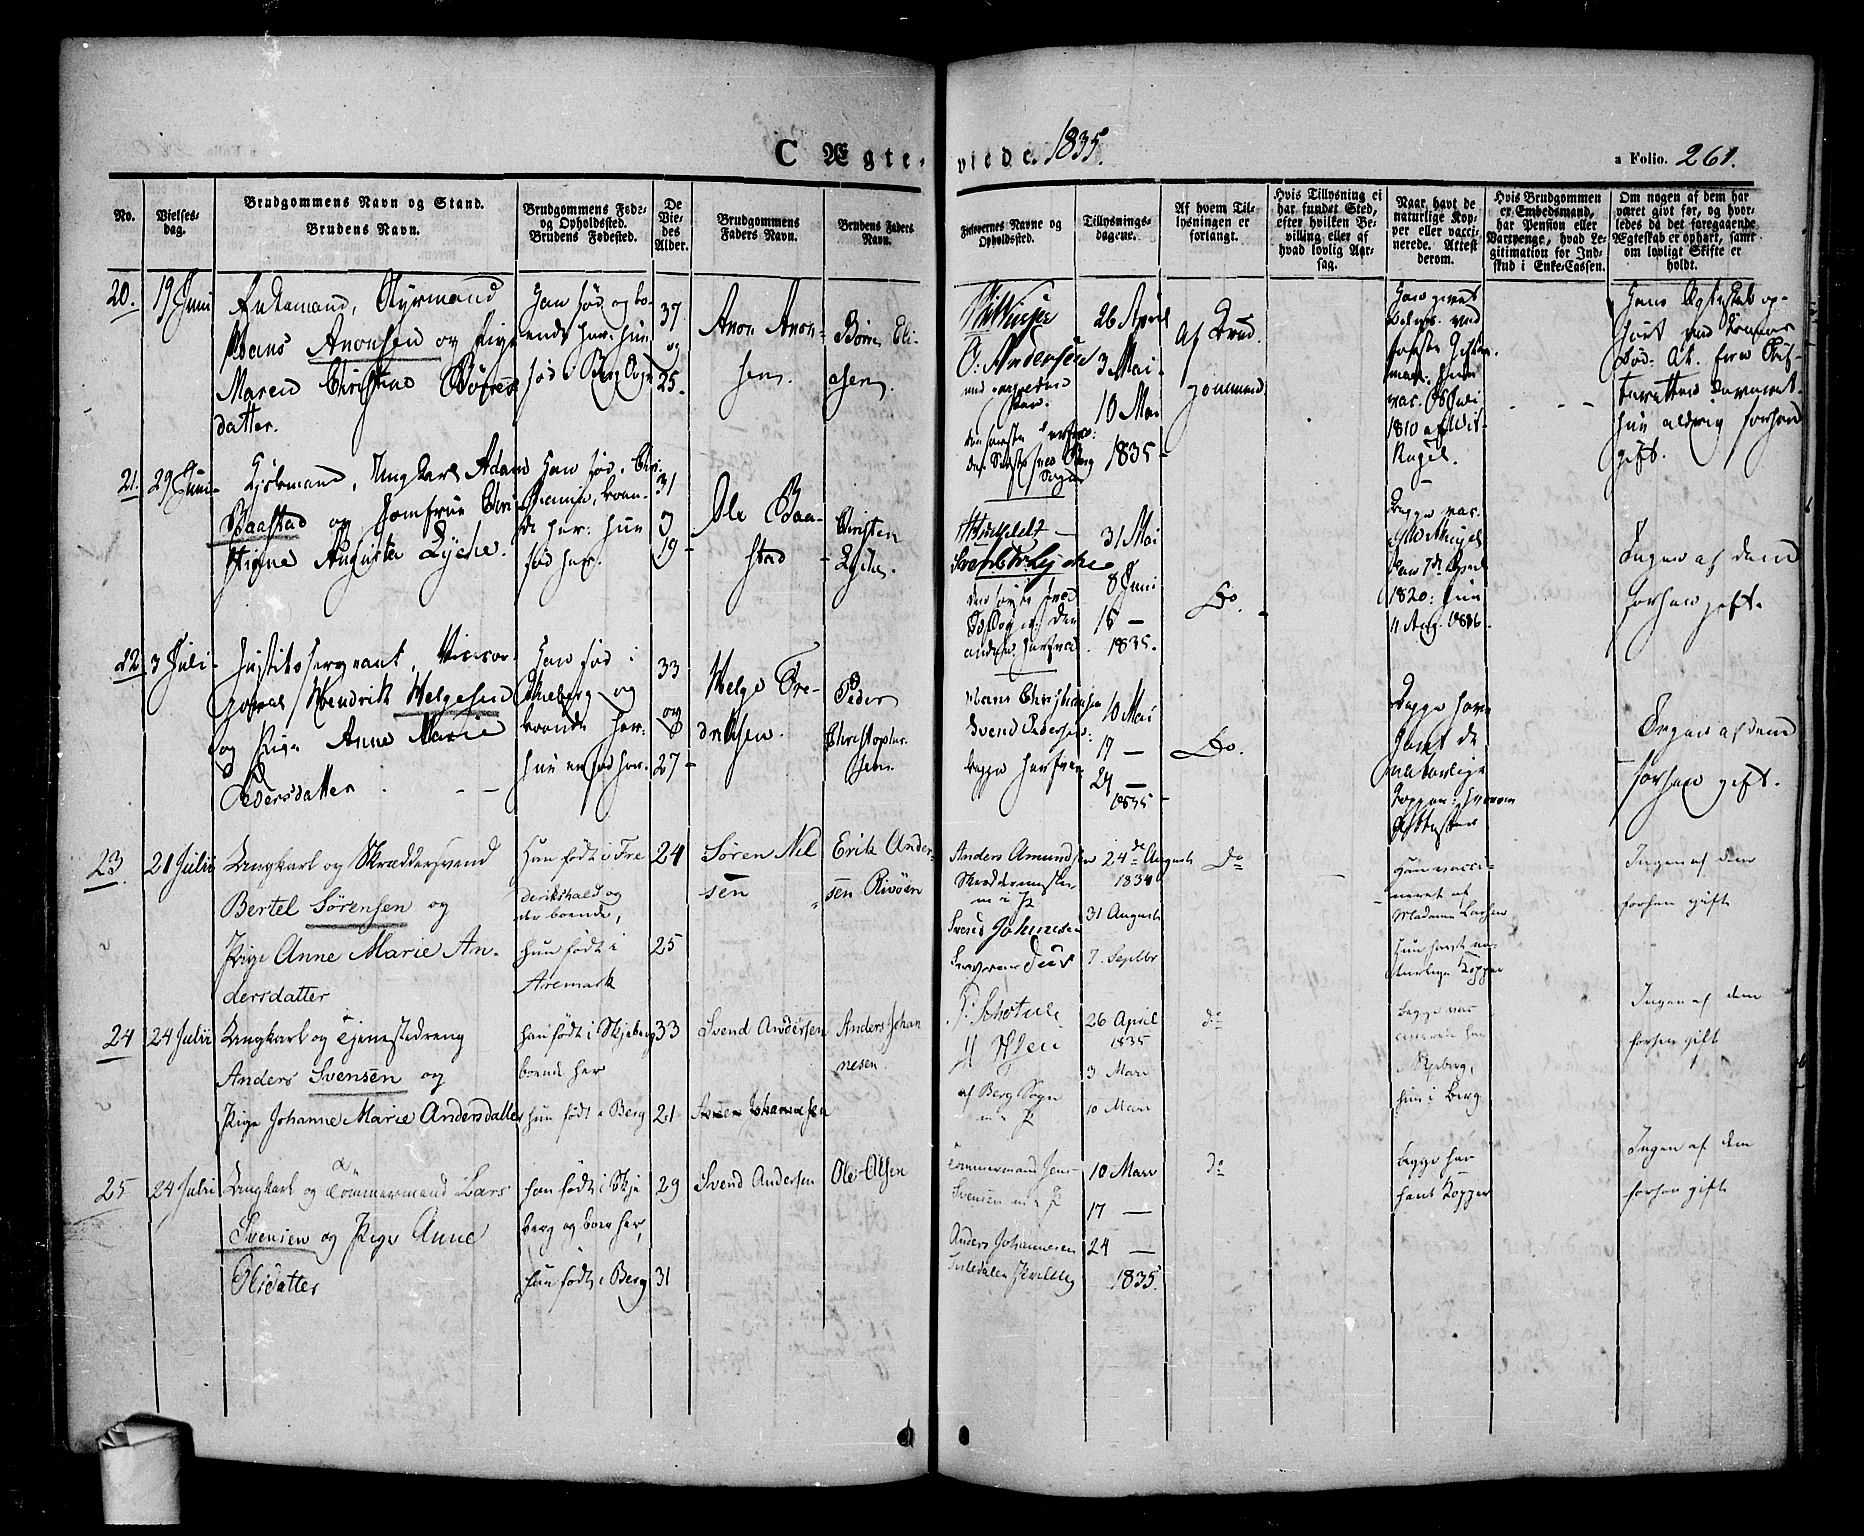 C Ægteviede. 1835.
a Folio. 261.
No.
Vielses-
dag.
Brudgommens Navn og Stand.
Brudens Navn.
Brudgommens Føde-
og Opholdssted.
Brudens Fødested.
De
Vie-
des
Alder.
Brudgommens
Faders Navn.
Brudens Faders
Navn.
Forlovernes Navne og
Opholdssted.
Tillysnings-
dagene.
Af hvem Til-
lysningen er
forlangt.
Hvis Tillysning ei
har fundet Sted,
efter hvilken Be-
villing eller af
hvad lovlig Aar-
sag.
Naar havt de
naturlige Kop-
per eller vacci-
nerede. Attest
derom.
Hvis Brudgommen
er Embedsmand,
har Pension eller
Vartpenge, hvad Le-
gitimation for Ind-
skud i Enke-Cassen.
Om nogen af dem har
været givt før, og hvor-
ledes da det foregaaende
Ægteskab er ophørt, samt
om lovligt Skifte er
holdt.
20.
19 Juni
Enkemand, Styrmand
Hans Anonsen og Pige
Maren Christine Børres
datter.
Han fød og bo-
ende her. hun
fød i Berg Sogn
37
og
25.
Anon Anon-
sen.
Børre Eli-
asen.
O: Andersen
26 April
3 Mai
10 Mai
1835
Af Brud-
gommen
1810 af Wit-
Kugel.
Hans Egteskab op-
hørt ved Konens
Død:
hun aldrig forhen
gift.
21.
29 Juni
Kjøbmand, Ungkarl Adam
Baastad og Jomfrue Chri
stigne Augusta Lyche.
Han fød i Chri-
stiania, boen-
de her: hun
fød her.
31
og
19
Ole Baa-
stad
Christen
Lyche.
31 Mai
8 Juni
15 —
1835.
Do.
Begge vac.
den 7de April
1820: hun
11 Aug. 1816.
Ingen af dem
forhen gift.
22
3 Juli
Justitssergeant, Vicecor-
poral Hendrik Helgesen
og Pige Anne Marie
Pedersdatter
Han fød i
og
boende her.
hun er fød her.
33
og
27
Helge Fre-
driksen.
Peder
Christopher-
sen.
Hans Christiansen
Svend Pedersen
begge herfra
10 Mai
17 —
24 —
1835
Do.
Begge have
havt de
naturlige
Kopper.
Ingen af dem
forhen gift.
23
21 Julii
Ungkarl og Skræddersvend
Bertel Sørensen og
Pige Anne Marie An-
dersdatter
Han født i Fre
derikshald og
der boende,
hun født i
Aremark
24
25
Søren Nil
sen
Erik Ander-
sen Rivöen
Anders Amundsen
Skreddermester
Svend Johnesen
24de Augusti
1834
31 Augusti
7. Septbr
Do
Han vacci-
neret af
Madame Larsen
Hun havt na-
turlige Kopper
Ingen af dem
forhen gift
24
24 Julii
Ungkarl og Tjenestedreng
Anders Svensen og
Pige Johanne Marie Andersdatter
han født i Skjeberg
boende her
hun født i Berg
33
21
Svend Andersen
Anders Johan
nesen
af Berg Sogn
26 April
1835
3 Mari
10 Mari
do
begge vac
cinerede han
i Skjeberg,
hun i Berg
Ingen af dem
forhen gift
25
24 Julii
Ungkarl og Tömmermand Lars
Svensen og Pige Anne
Olsdatter
han født i Skje
berg og boer her,
hun født i Berg
29
31
Svend Andersen
Ole Olsen
Tömmermand Jens
Svensen
Anders Johannesen
10 Mari
17 —
24 —
1835.
do
begge har
havt Kopper
Ingen af dem
forhen gift